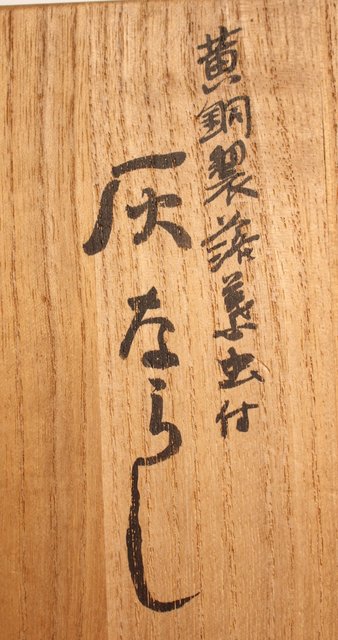 黄銅製落葉虫付
灰ならし